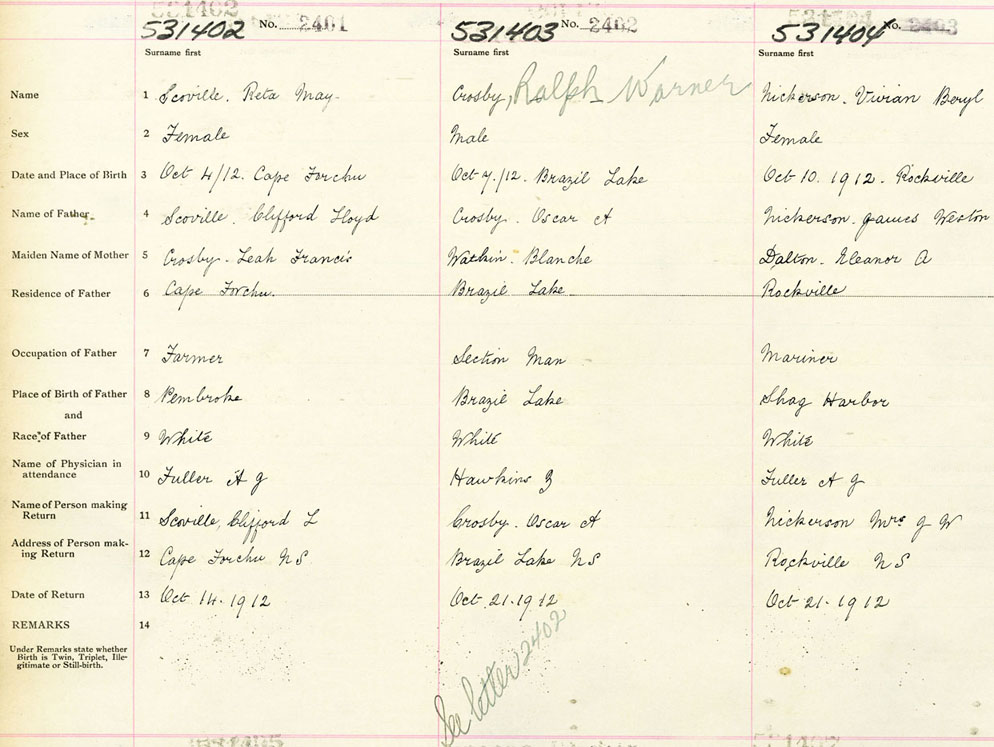 531402 No. 2401 531403 No. 2402 531404 No. 2403
Surname first Surname first Surname first
Name 1 Scoville. Reta May- Crosby, Ralph Warner Nickerson. Vivian Beryl
Sex 2 Female Male Female
Date and Place of Birth 3 Oct 4/12. Cape Forchu Oct 7./12. Brazil Lake Oct 10. 1912. Rockville
Name of Father 4 Scoville. Clifford Lloyd Crosby. Oscar A Nickerson. James Weston
Maiden Name of Mother 5 Crosby- Leah Francis Watkin. Blanche Dalton- Eleanor A
Residence of Father 6 Cape Forchu. Brazil Lake Rockville
Occupation of Father 7 Farmer Section Man Mariner
Place of Birth of Father 8 Pembroke Brazil Lake Shag Harbor
and
Race of Father 9 White White White
Name of Physician in
attendance 10 Fuller A J Hawkins Z Fuller A J
Name of Person making
Return 11 Scoville, Clifford L Crosby. Oscar A Nickerson Mrs J W
Address of Person mak-
ing Return 12 Cape Forchu NS Brazil Lake NS Rockville NS
Date of Return 13 Oct 14. 1912 Oct 21. 1912 Oct 21. 1912
REMARKS 14
Under Remarks state whether
Birth is Twin, Triplet, Ille-
gitimate or Still-birth.
See letter 2402